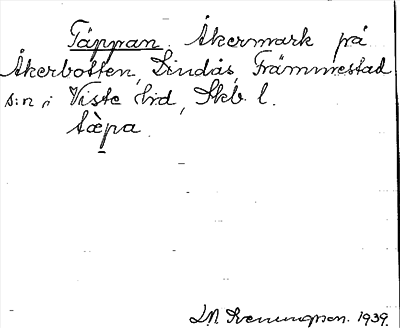 Täppan. Åkermark på
Åkerbotten, Lindås, Främmestad
s:n i Viste hd, Skb. l.
tæ̀pa.
1939.